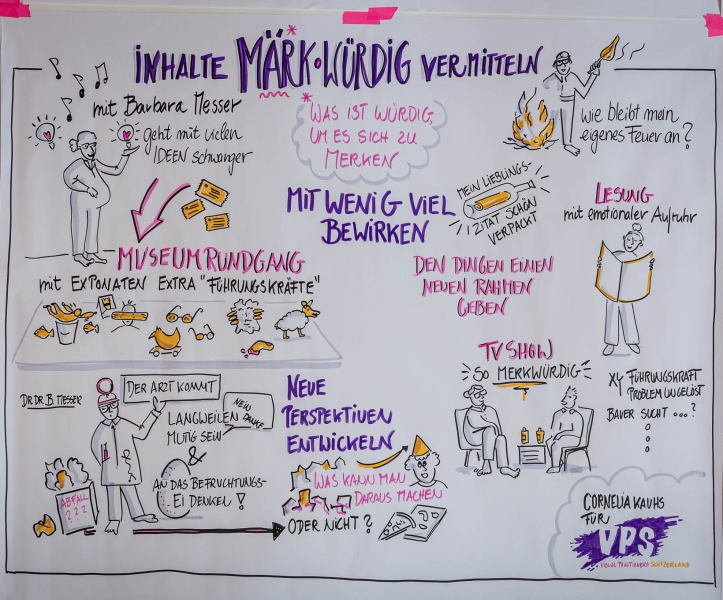 INHALTE MÄRK·WÜRDIG VERMITTELN
mit Barbara Messer
geht mit vielen
IDEEN schwanger
* WAS IST WÜRDIG,
UM ES SICH ZU
MERKEN
wie bleibt mein
eigenes Feuer an?
MIT WENIG VIEL
BEWIRKEN
MEIN LIEBLINGS-
ZITAT SCHÖN
VERPACKT
LESUNG
mit emotionaler Aufruhr
MUSEUMRUNDGANG
mit EXPONATEN EXTRA "FÜHRUNGSKRÄFTE"
DEN DINGEN EINEN
NEUEN RAHMEN
GEBEN
TV SHOW
SO MERKWÜRDIG
XY FÜHRUNGSKRAFT
PROBLEM UNGELÖST
BAUER SUCHT ...?
DR. DR. B MESSER
DER ARZT KOMMT
LANGWEILEN
NEIN DANKE
MUTIG SEIN
&
AN DAS BEFRUCHTUNGS-
EI DENKEN!
ABFALL
???
NEUE
PERSPEKTIVEN
ENTWICKELN
WAS KANN MAN
DARAUS MACHEN
ODER NICHT?
CORNELIA KAUHS
FÜR
VPS
VISUAL PRACTITIONERS SWITZERLAND